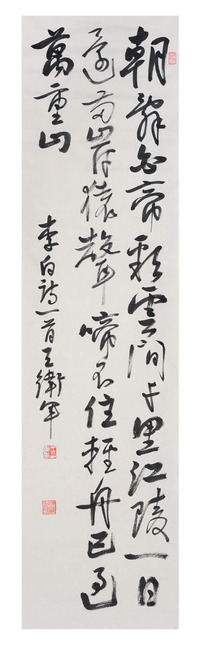 朝辞白帝彩雲間千里江陵一日
還两岸猿聲啼不住輕舟已過
萬重山
李白詩一首王衛军